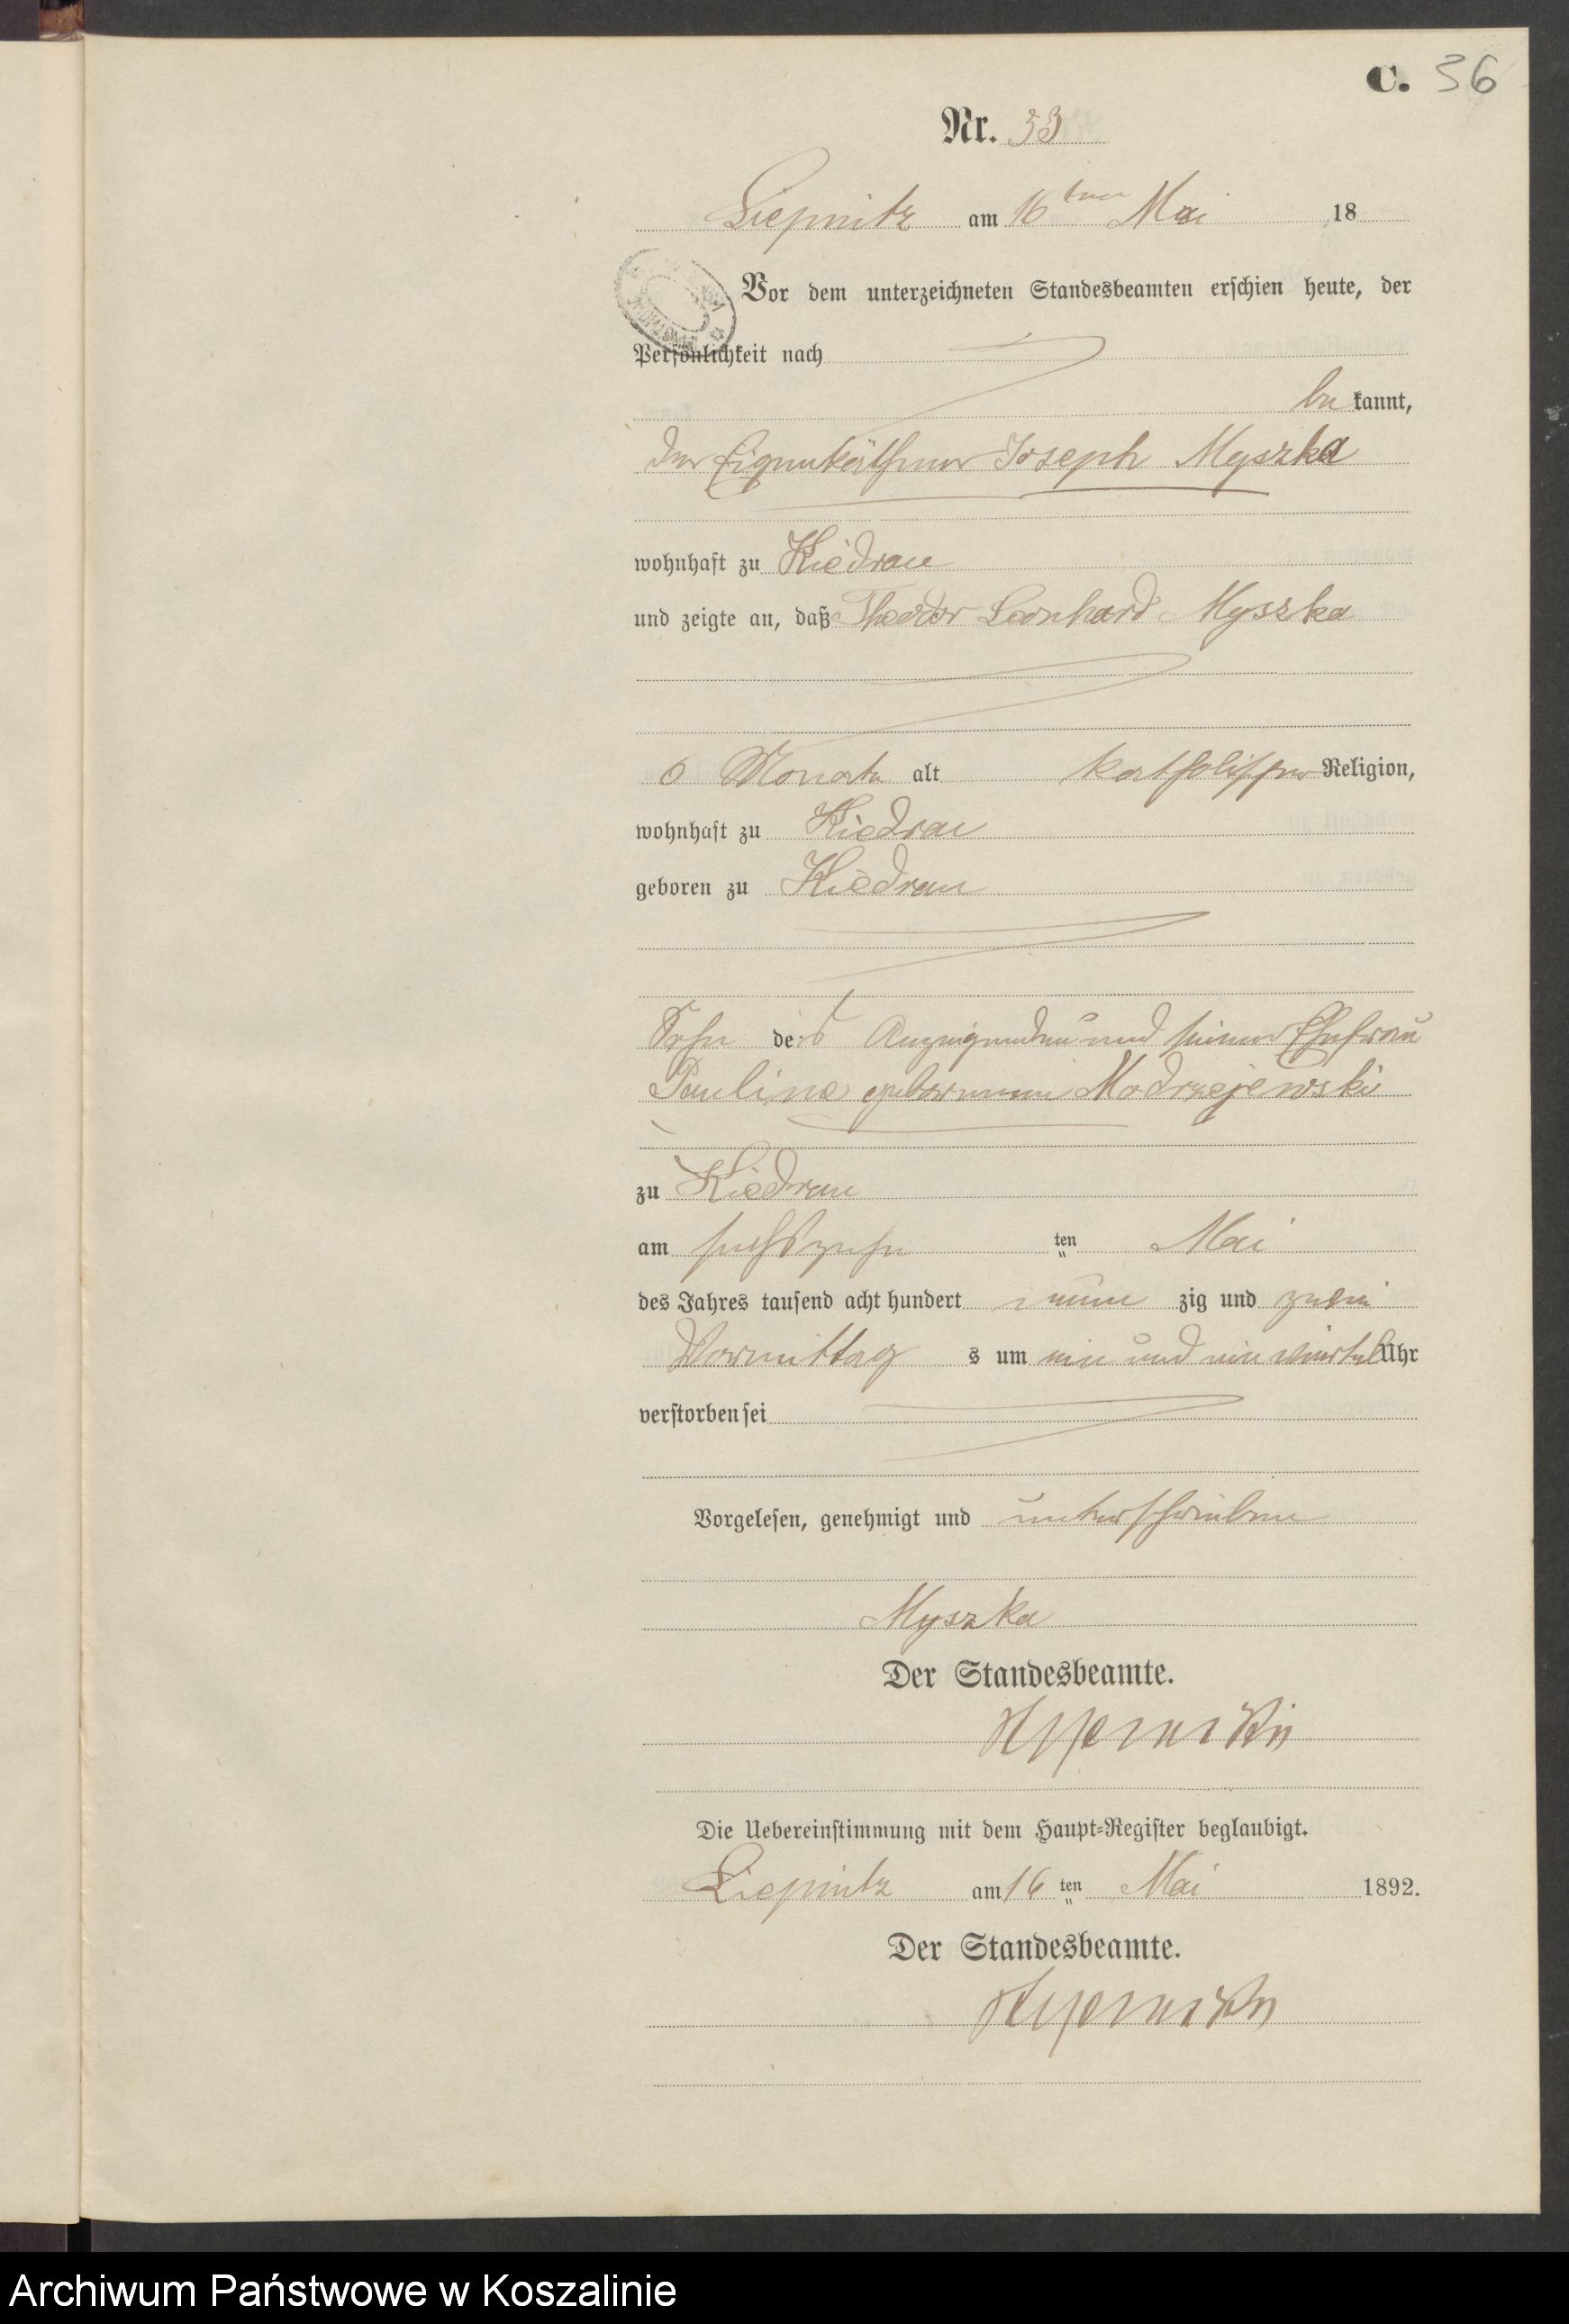 C. 36
Nr. 33
Liepnitz am 16ten Mai 18
Vor dem unterzeichneten Standesbeamten erschien heute, der
Persönlichkeit nach
be kannt,
der Eigenkäthner Joseph Myszka
wohnhaft zu Kiedrau
und zeigte an, daß Theodor Leonhard Myszka
6 Monate alt katholischer Religion,
wohnhaft zu Kiedrau
geboren zu Kiedrau
Sohn des Anzeigenden und seiner Ehefrau
Pauline geborenen Modrzejewski
zu Kiedrau
am sechszehn ten Mai
des Jahres tausend acht hundert neun zig und zwei
Vormittag s um ein und ein viertel Uhr
verstorben sei
Vorgelesen, genehmigt und unterschrieben
Myszka
Der Standesbeamte.
Die Uebereinstimmung mit dem Haupt-Register beglaubigt.
Liepnitz am 16 ten Mai 1892.
Der Standesbeamte.
Archiwum Państwowe w Koszalinie